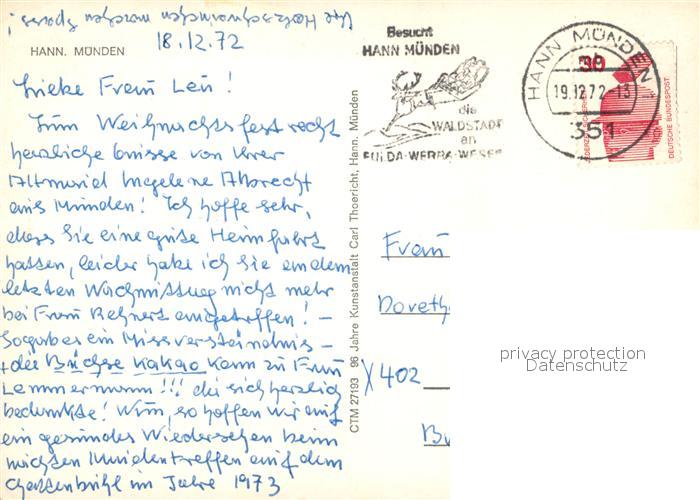 Alle Holzschuhindianer machen Spass!
HANN. MÜNDEN
18.12.72
Liebe Frau Leu!
Zum Weihnachtsfest recht
herzliche Grüsse von Ihrer
Albrecht
aus Münden! Ich hoffe sehr,
dass Sie eine gute Heimfahrt
hatten, leider habe ich Sie an dem
letzten Nachmittag nicht mehr
bei Frau Behnert angetroffen! –
Sogar ein Missverständnis –
die Büchse Kakao kam zu Frau
Lemmermann!!! die sich herzlich
bedankte! Nun, so hoffen wir auf
ein gesundes Wiedersehen beim
nächsten Mündentreffen auf dem
im Jahre 1973
CTM 27193 96 Jahre Kunstanstalt Carl Thoericht, Hann. Münden
Besucht
HANN MÜNDEN
die
WALDSTADT
an
FULDA-WERRA-WESER
HANN MÜNDEN
19.12.72-13
351
30
DEUTSCHE BUNDESPOST
Frau
Doroth
X402
privacy protection
Datenschutz